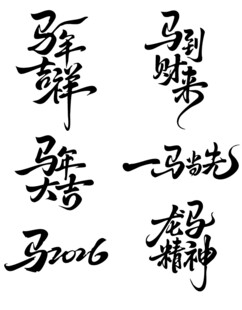 马年
吉祥
马到
财来
马年
大吉
一马当先
马2026
龙马
精神